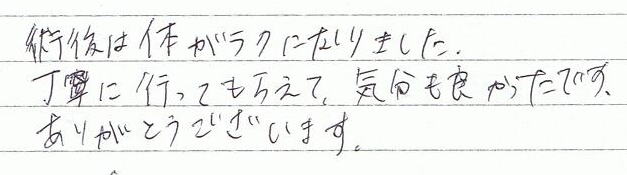 術後は体がラクになりました.
丁寧に行ってもらえて、気分も良かったです、
ありがとうございます。